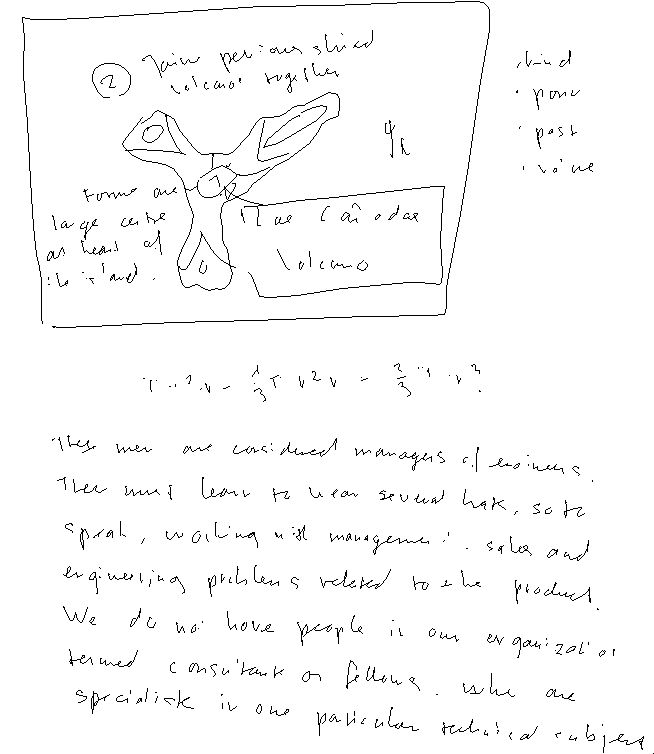 ② Join previous shield
volcano together
Forms one
large centre
as heart of
the island.
Volcano
past
π r² r - 1/3 π r² r = 2/3 π r³.
These men are considered managers of engineers.
They must learn to wear several hats, so to
speak, working with management, sales and
engineering problems related to the product.
We do not have people in our organization
termed consultants or fellows, who are
specialists in one particular technical subject.